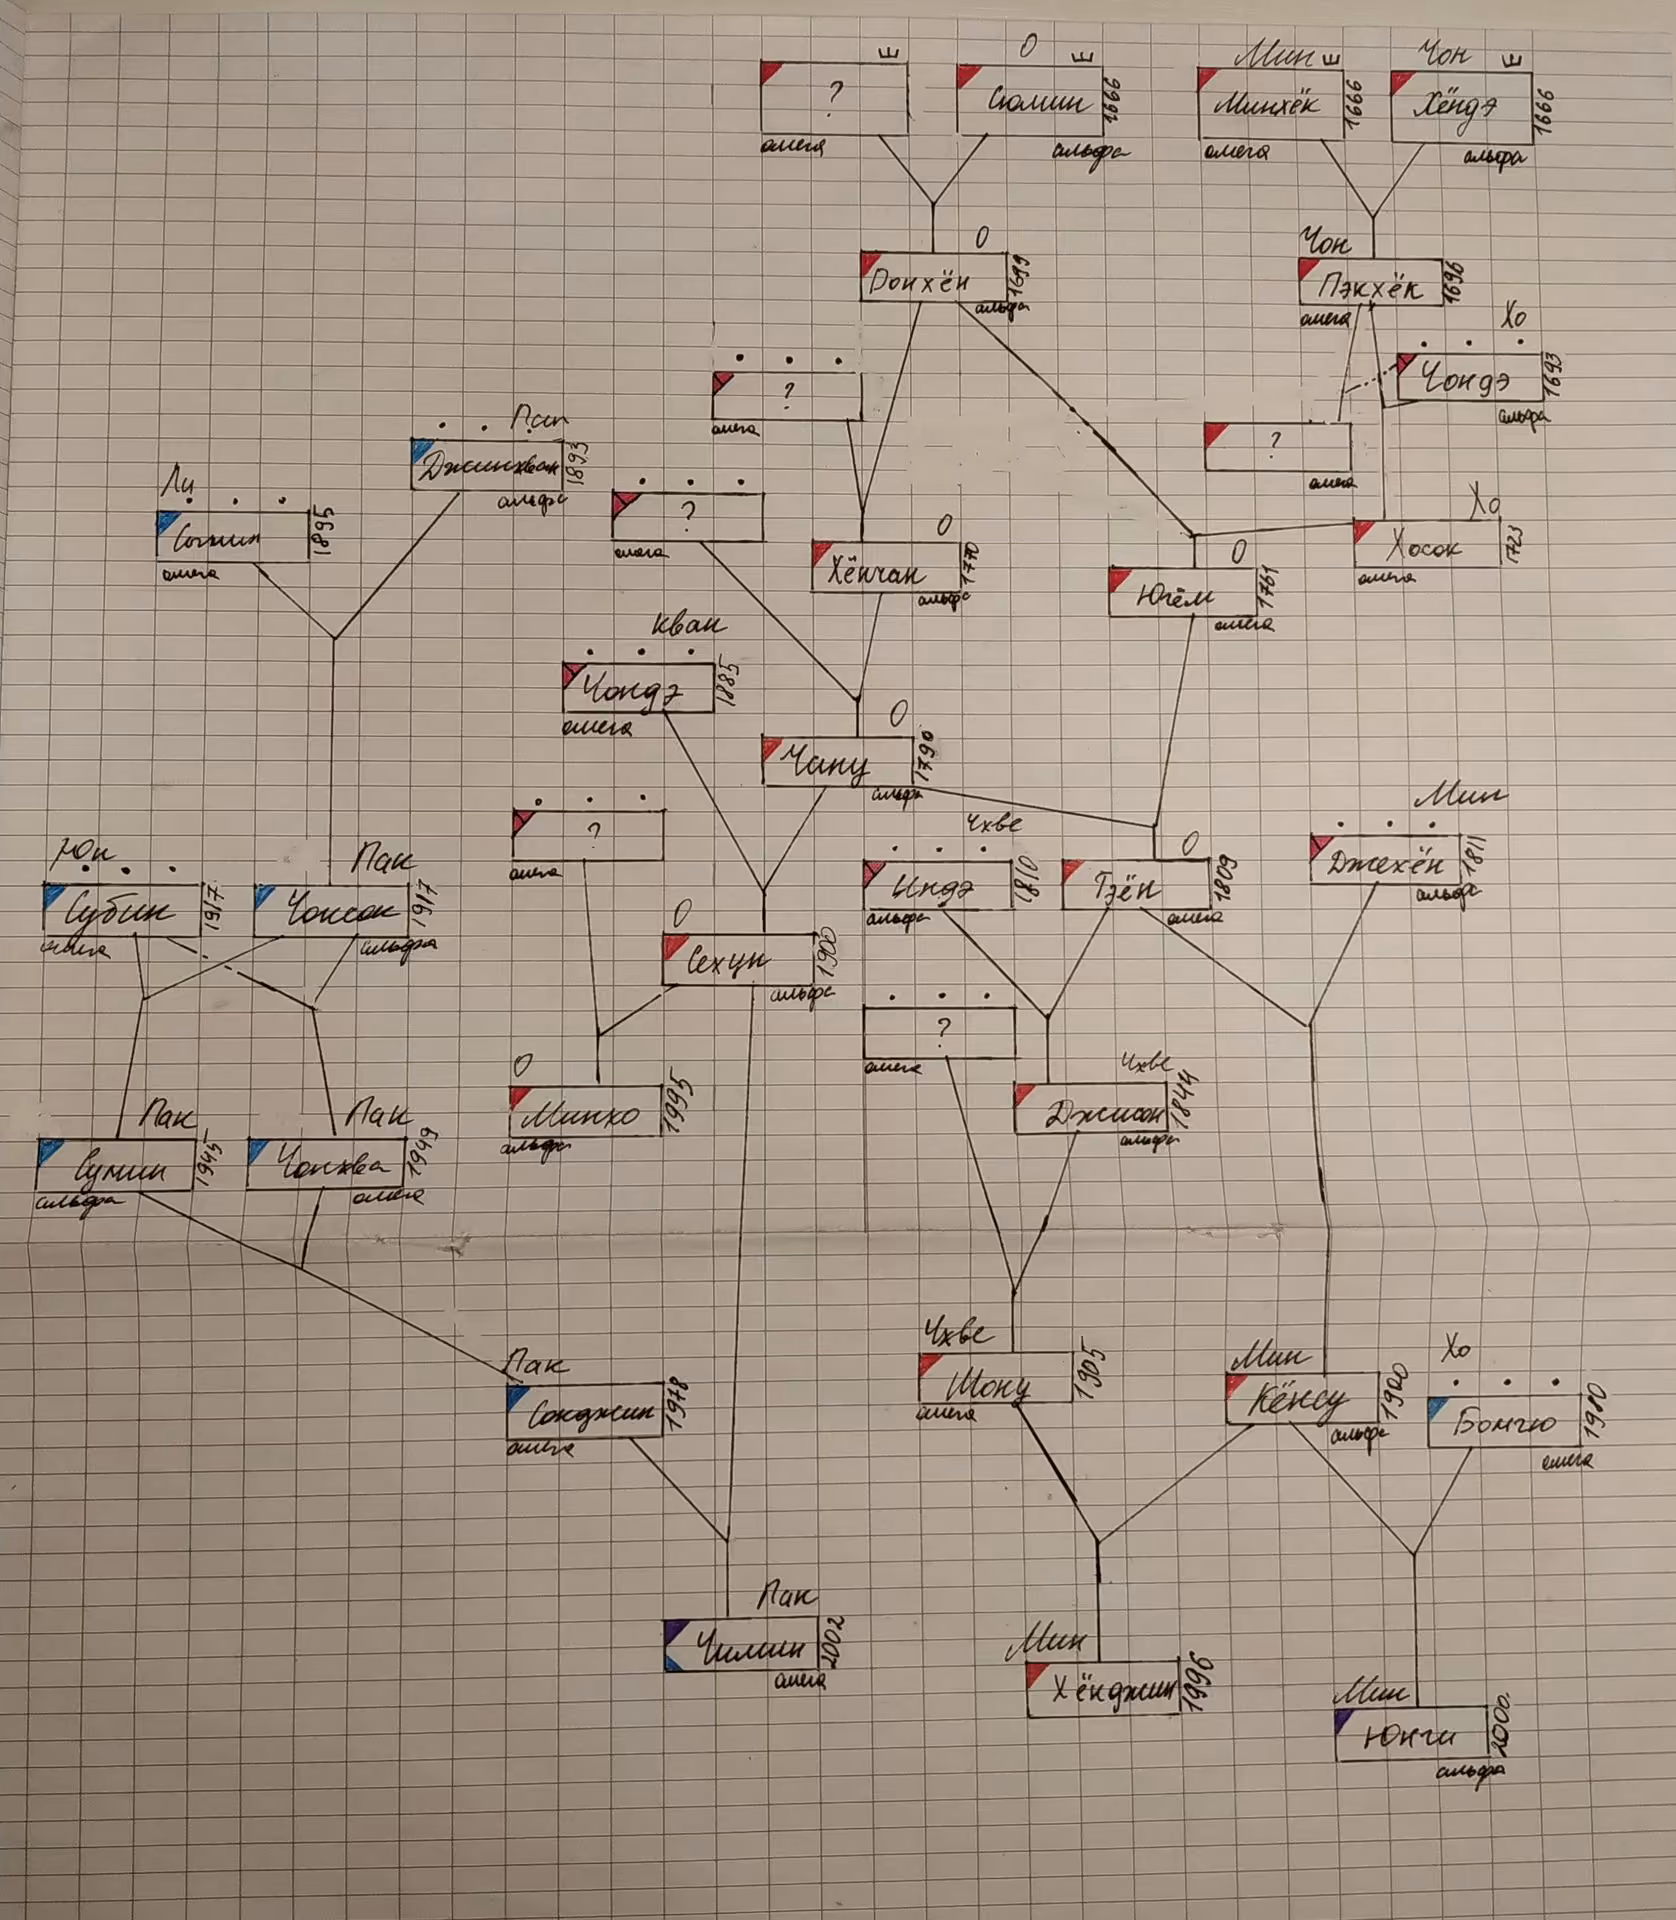 Е
?
омега
О
Е
Сюмин
1666
альфа
Мин Е
Минхёк
1666
омега
Чон
Е
Хёндэ
1666
альфа
О
Донхён
1699
альфа
Чон
Пэкхёк
1696
омега
Хо
Чондэ
1693
альфа
?
омега
?
омега
Пак
Джинхван
1893
альфа
Ли
1895
омега
?
омега
О
Хёнчан
1770
альфа
О
Югём
1761
омега
Хо
Хосок
1723
омега
Кван
Чондэ
1885
омега
О
Чану
1790
альфа
?
омега
Чхве
Индэ
1810
альфа
О
Тэён
1809
омега
Мин
Джехён
1811
альфа
Юн
Субин
1917
омега
Пак
Чонсок
1917
альфа
О
Сехун
1900
альфа
?
омега
О
Минхо
1995
альфа
Чхве
Джисон
1844
альфа
Пак
Сумин
1945
альфа
Пак
Чонхва
1949
омега
Пак
Сонджин
1978
омега
Чхве
Шону
1905
омега
Мин
Кёнсу
1900
альфа
Хо
Бомгю
1980
омега
Пак
Чимин
2002
омега
Мин
Хёнджин
1996
Мин
Юнги
2000
альфа